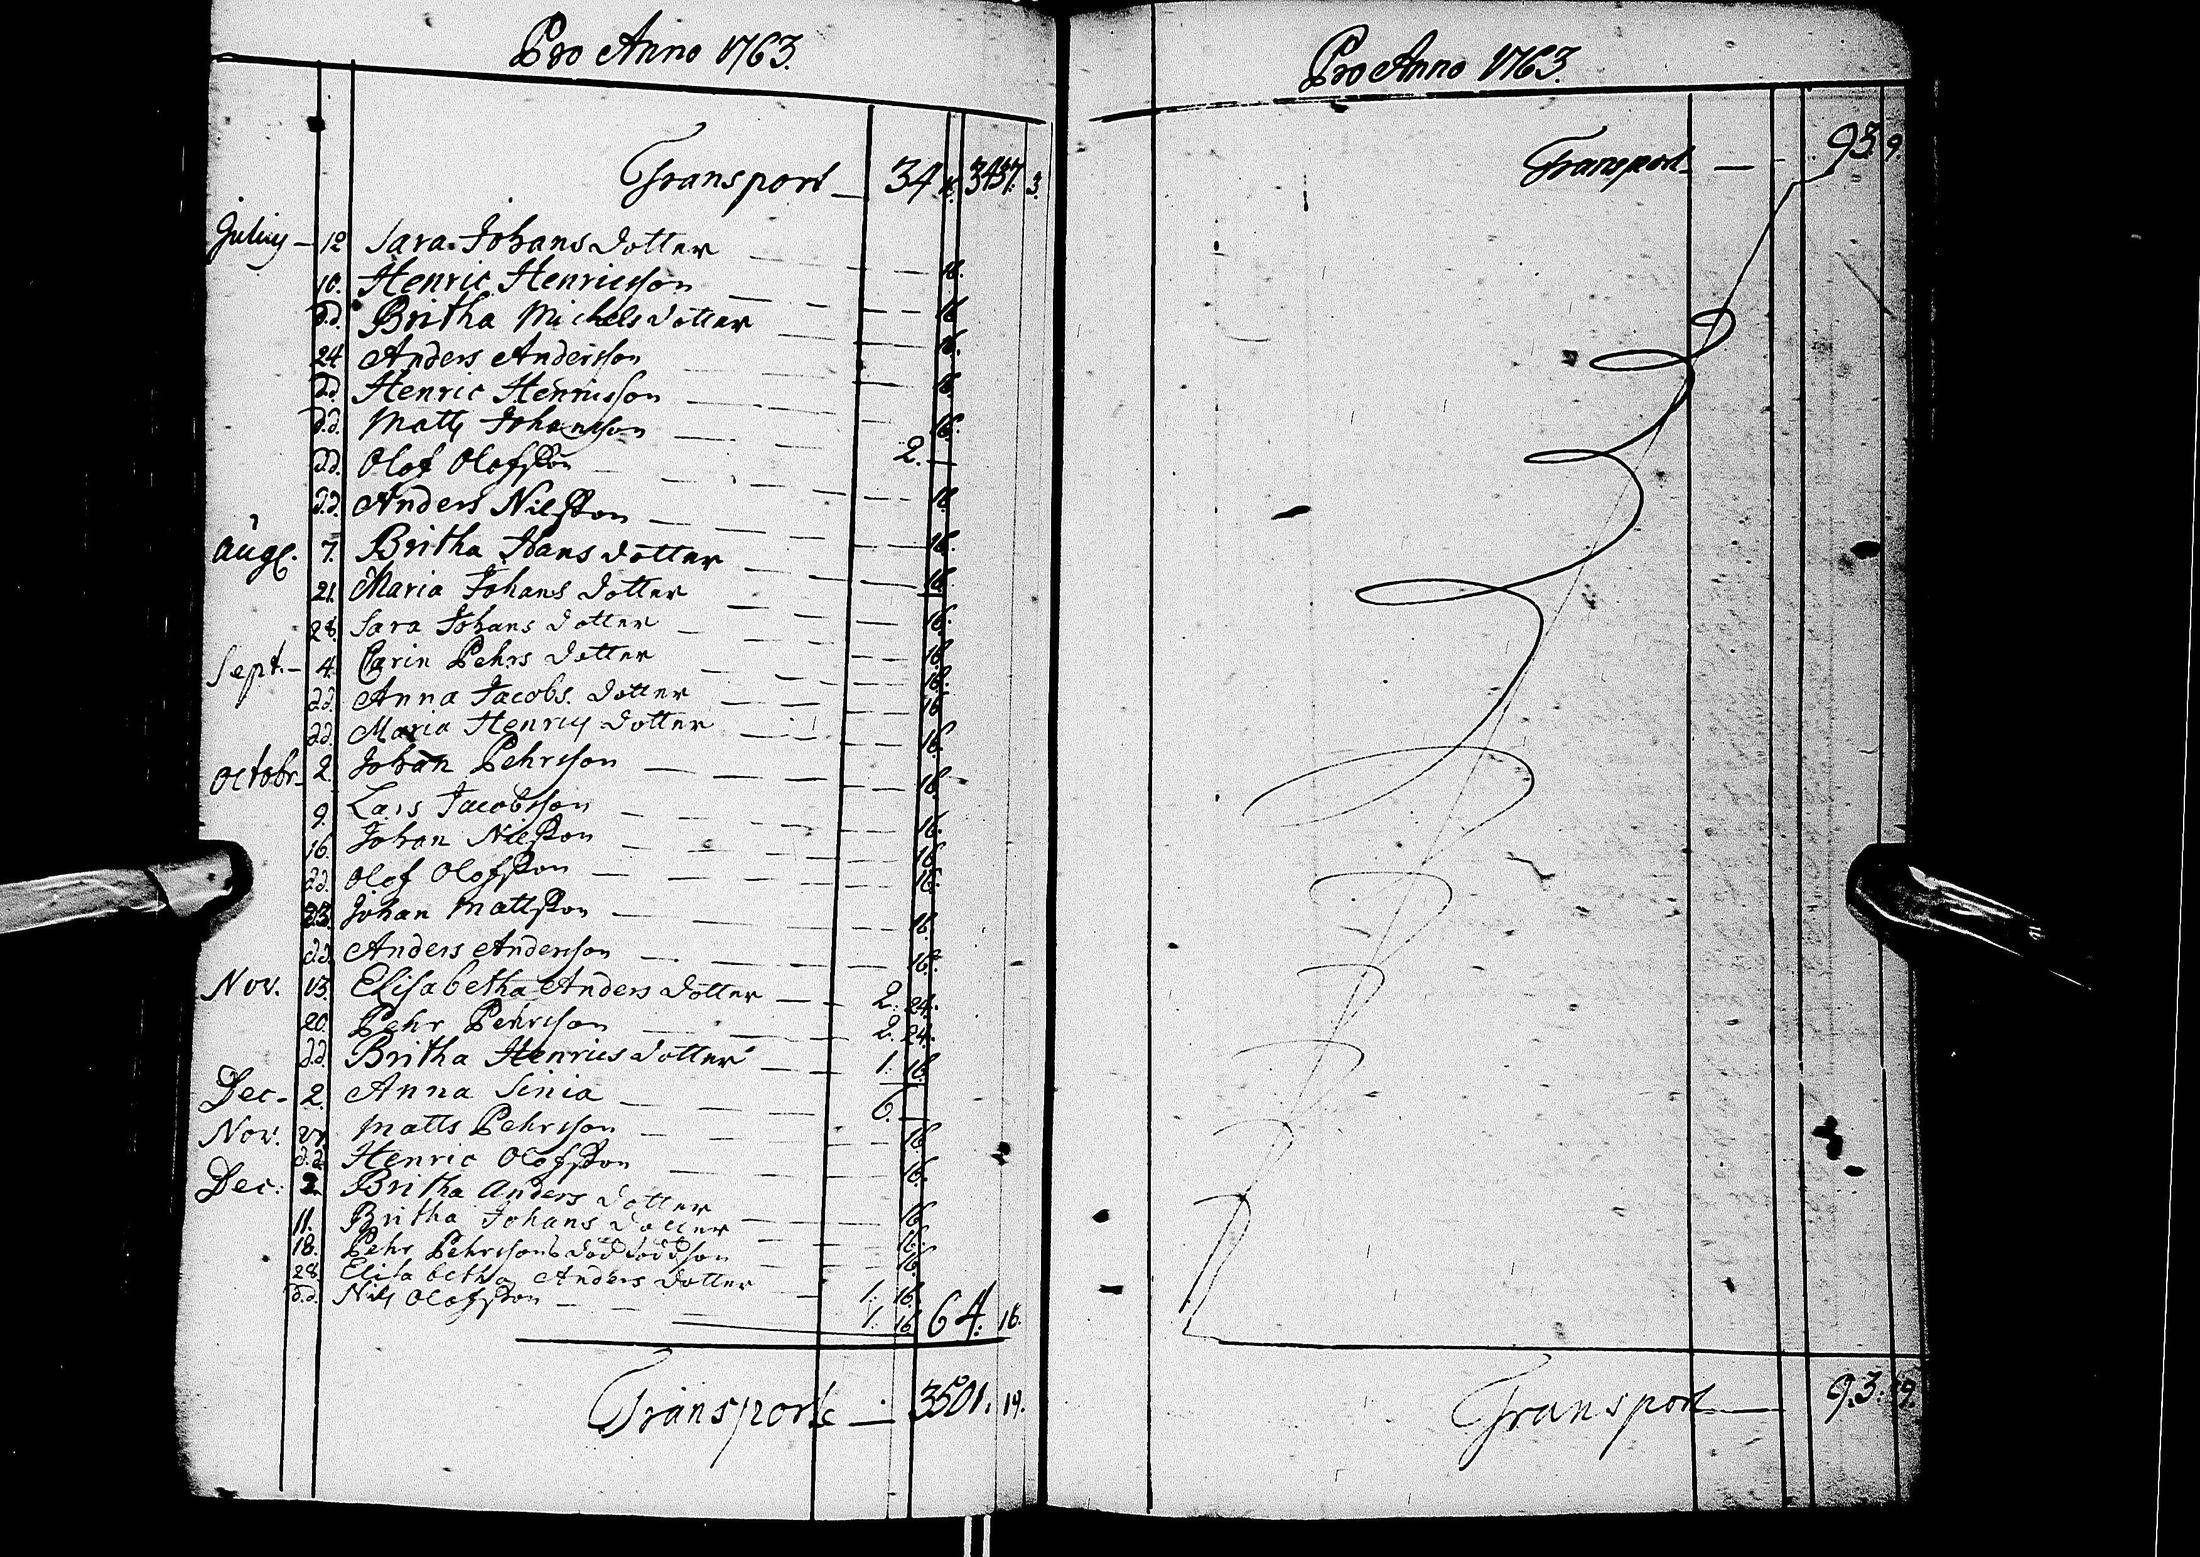 Pro Anno 1763.
Transport — 34 16. 3437. 3.
Julius — 12 Sara Johans dotter — 16.
10. Henric Henricsson — 16.
d.d. Britha Michels dotter — 16.
24 Anders Andersson — 16.
d.d. Henric Henricsson — 16.
d.d. Matts Johansson — 2. —
d.d. Olof Olofsson — 16.
d.d. Anders Nilsson — 16.
Aug. 7. Britha Hans dotter — 16.
21. Maria Johans dotter — 16.
28. Sara Johans dotter — 16.
Sept. — 4. Carin Pehrs dotter — 16.
d.d. Anna Jacobs dotter — 16.
d.d. Maria Henrics dotter — 16.
Octobr. 2. Johan Pehrsson — 16.
9. Lars Jacobsson — 16.
16. Johan Nilsson — 16.
d.d. Olof Olofsson — 16.
23. Johan Mattsson — 16.
d.d. Anders Andersson — 16.
Nov. 13. Elisabetha Anders dotter — 2. 24.
20. Pehr Pehrsson — 2. 24.
d.d. Britha Henrics dotter — 1. 16.
Dec. 2. Anna Sinia — 6. —
Nov. 27. Matts Pehrsson — 16.
d.d. Henric Olofsson — 16.
Dec. 2. Britha Anders dotter — 16.
11. Britha Johans dotter — 16.
18. Pehr Pehrssons dödfödd son — 16.
28. Elisabetha Anders dotter — 1. 16.
d.d. Nils Olofsson — 1. 16. 64. 16.
Transport — 3501. 19.
Pro Anno 1763.
Transport — 93. 9.
Transport — 93. 9.